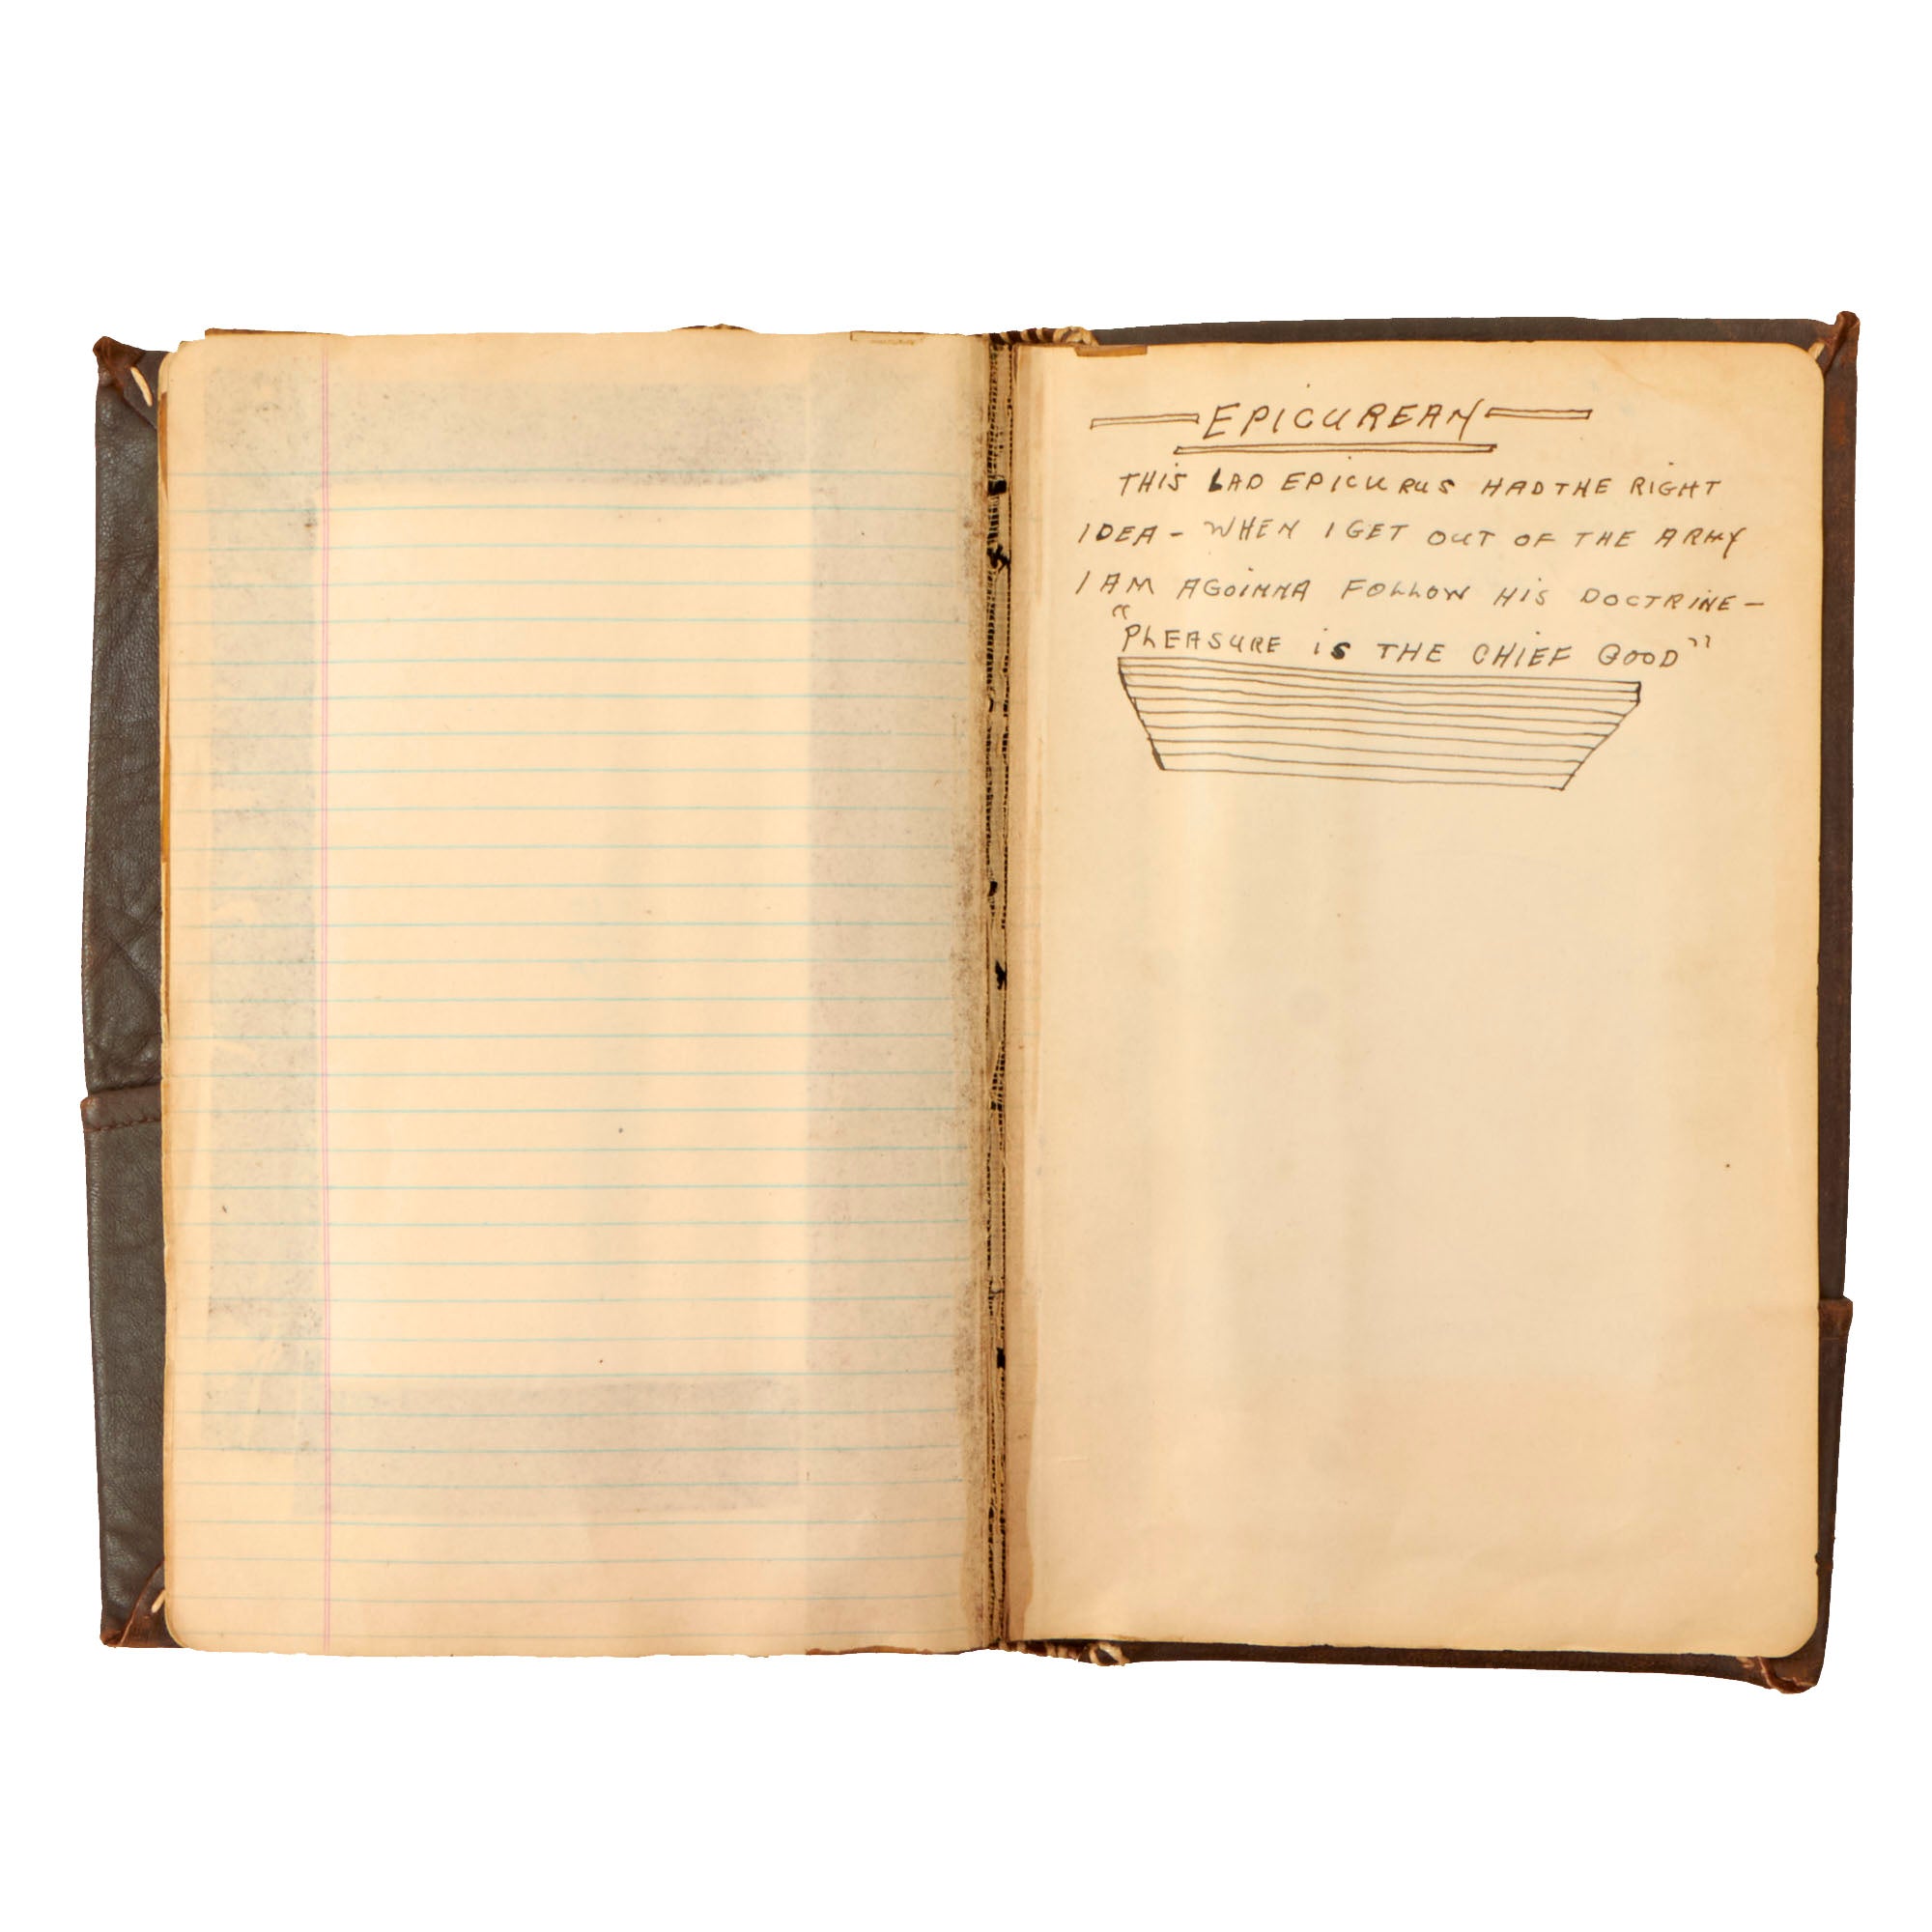 EPICUREAN
THIS LAD EPICURUS HAD THE RIGHT
IDEA - WHEN I GET OUT OF THE ARMY
I AM AGOINNA FOLLOW HIS DOCTRINE -
"PLEASURE iS THE CHIEF GOOD"